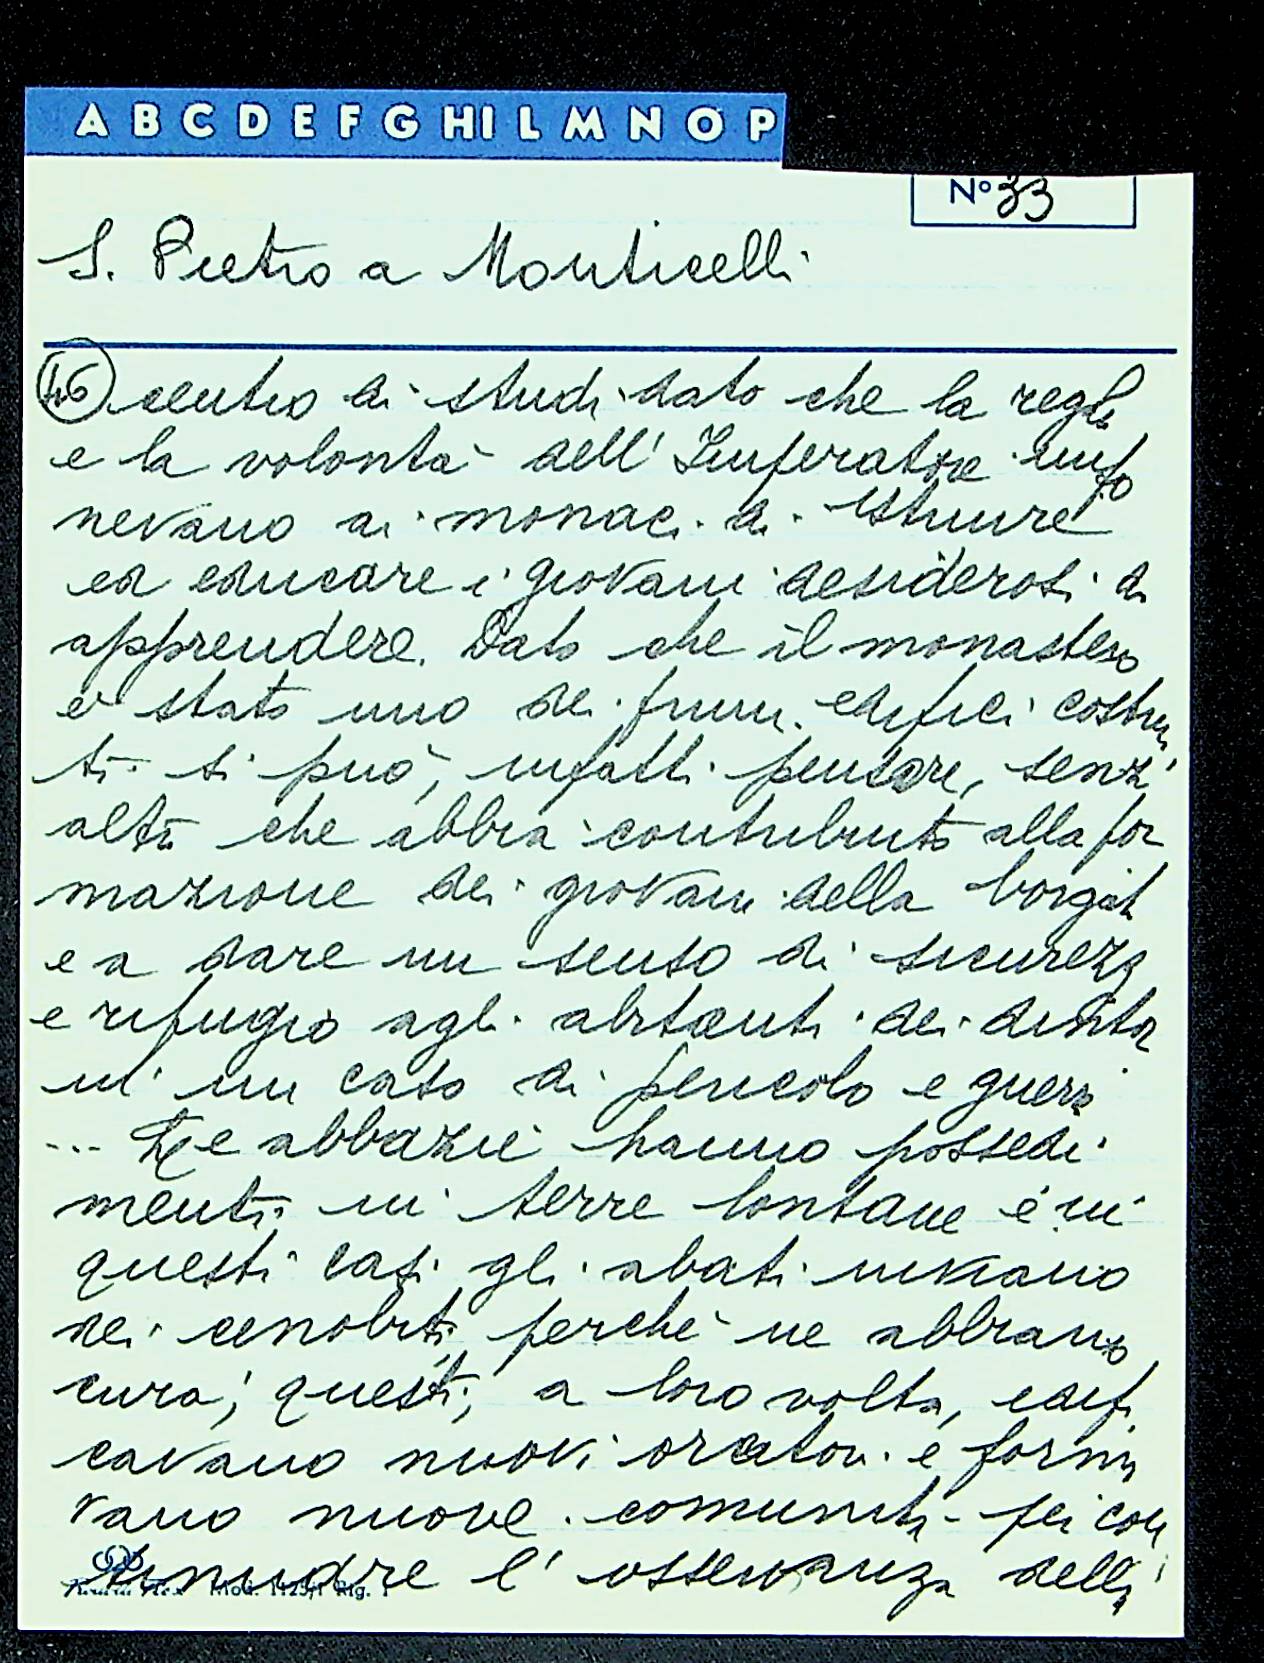 A B C D E F G H I L M N O P
N° 33
S. Pietro a Monticelli
46 centro di studi dato che la regola
e la volontà dell'Imperatore impo
nevano ai monaci di istruire
ed educare i giovani desiderosi di
apprendere. Dato che il monastero
è stato uno dei primi edifici costrui
ti si può, infatti pensare, senz'
altro che abbia contribuito alla for
mazione dei giovani della borgata
e a dare un senso di sicurezza
e rifugio agli abitanti dei dintor
ni in caso di pericolo e guerra
... Le abbazie hanno possedi
menti in terre lontane e in
questi casi gli abati inviano
dei cenobiti perchè ne abbiano
cura; questi, a loro volta, edifi
cavano nuovi oratori e forma
vano nuove comunità per con
tinuare l'osservanza della
Mod. 1125/1 Rig. 1